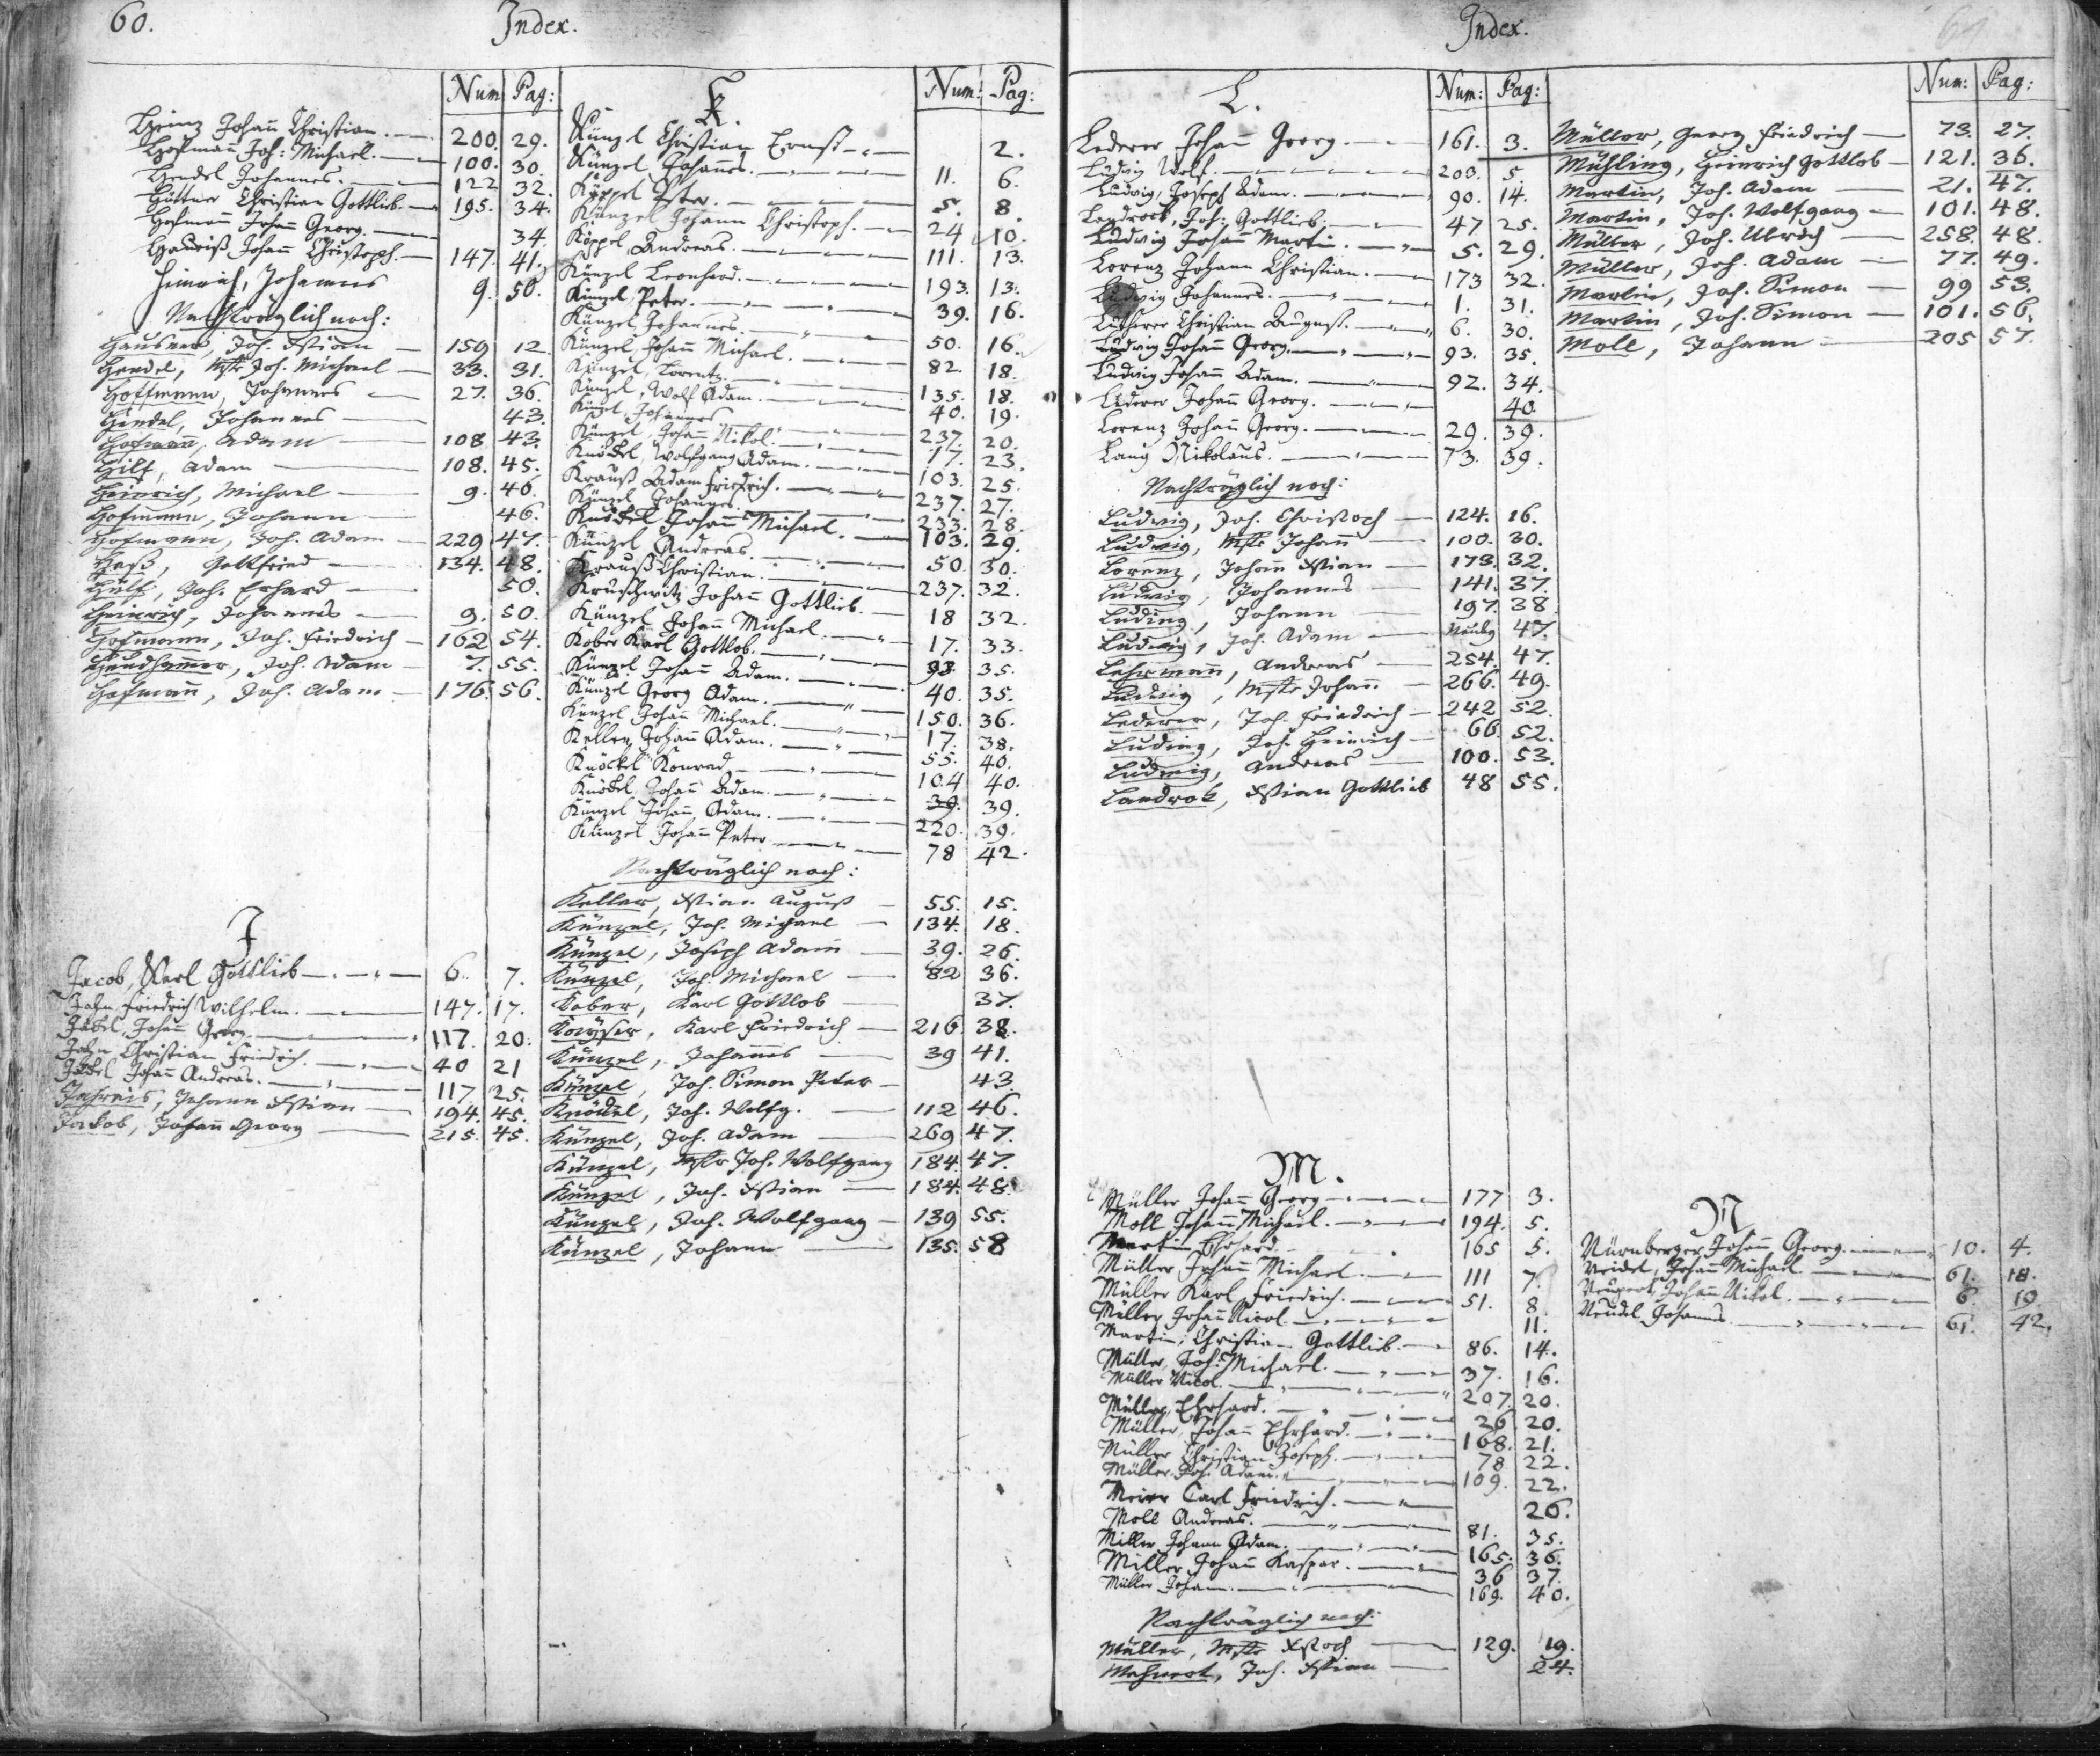 60.
Index.
Num: Pag:
Heinz Johann Christian. 200. 29.
Hofmann Joh: Michael. 100. 30.
Hendel Johannes. 122 32.
Hüttner Christian Gottlieb. 195. 34.
Hofmann Johann Georg. 34.
Johann Christoph. 147. 41.
Heinrich, Johannes 9. 50.
Nachträglich noch:
Hausner, Joh. Xstian 159 12
Hendel, Mstr Joh. Michael 33. 31.
Hoffmann, Johannes 27. 36.
Hendel, Johannes 43.
Hofmann, Adam 108 43.
Hilf, Adam 108. 45.
Heinrich, Michael 9. 46.
Hofmann, Johann 46.
Hofmann, Joh. Adam 229 47.
Heß, Gottfried 134. 48.
Hülf, Joh. Erhard 50.
Heinrich, Johannes 9. 50.
Hofmann, Joh. Friedrich 162 54.
Joh. Adam 7. 55.
Hofmann, Joh. Adam 176. 56.
J
Jacob, Karl Gottlieb 6. 7.
Jahn Friedrich Wilhelm. 147. 17.
Jäckel Johann Georg 117. 20.
Jahn Christian Friedrich. 40 21
Jäckel Johann Andreas. 117. 25.
Jahreis, Johann Xstian 194. 45.
Jakob, Johann Georg 215. 45.
K.
Num: Pag:
Künzel Christian Ernst 2.
Künzel Johannes. 11. 6.
Köppel Peter. 5. 8.
Künzel Johann Christoph. 24 10.
Köppel Andreas. 111. 13.
Künzel Leonhard. 193. 13.
Künzel, Peter. 39. 16.
Künzel Johannes. 50. 16.
Künzel Johann Michael. 82. 18.
Künzel, Lorentz. 135. 18.
Künzel, Wolf Adam. 40. 19.
Künzel Johannes 237. 20.
Künzel Johann Nikol. 17. 23.
Knöckel, Wolfgang Adam. 103. 25.
Krauß Adam Friedrich. 237. 27.
Künzel Johannes. 233. 28.
Knöckel Johann Michael. 103. 29.
Künzel Andreas. 50. 30.
Krauß Christian. 237. 32.
Kruschwitz Johann Gottlieb. 18 32.
Künzel Johann Michael. 17. 33.
Kober Karl Gottlob. 93. 35.
Künzel Johann Adam. 40. 35.
Künzel Georg Adam. 150. 36.
Künzel Johann Michael. 17. 38.
Keller Johann Adam. 55. 40.
Knöckel Konrad 104 40.
Knöckel Johann Adam. 39. 39.
Künzel Johann Adam. 220. 39.
Künzel Johann Peter 78 42.
Nachträglich noch:
Keller, Xstian August 55. 15.
Künzel, Joh. Michael 134. 18.
Künzel, Joseph Adam 39. 26.
Künzel, Joh. Michael 82 36.
Kober, Karl Gottlob 37.
Kayser, Karl Friedrich 216. 38.
Künzel, Johannes 39 41.
Künzel, Joh. Simon Peter 43.
Knöckel, Joh. Wolfg. 112 46.
Künzel, Joh. Adam 269 47.
Künzel, Mstr Joh. Wolfgang 184. 47.
Künzel, Joh. Xstian 184. 48.
Künzel, Joh. Wolfgang 139 55.
Künzel, Johann 135. 58
Index.
L.
Num: Pag:
Lederer Johann Georg. 161. 3.
Ludwig Wolf. 200. 5.
Ludwig, Joseph Adam. 90. 14.
Landrock, Joh: Gottlieb. 47 25.
Ludwig Johann Martin. 5. 29.
Lorenz Johann Christian. 173 32.
Ludwig Johannes. 1. 31.
Christian August. 6. 30.
Ludwig Johann Georg. 93. 35.
Ludwig Johann Adam. 92. 34.
Lederer Johann Georg. 40.
Lorenz Johann Georg. 29. 39.
Lang Nikolaus. 73. 59.
Nachträglich noch:
Ludwig, Joh. Christoph 124. 16.
Ludwig, Mstr Johann 100. 30.
Lorenz, Johann Xstian 173. 32.
Ludwig, Johannes 141. 37.
Ludwig, Johann 197. 38.
Ludwig, Joh. Adam 47.
Lehrmann, Andreas 254. 47.
Ludwig, Mstr Johann 266. 49.
Lederer, Joh. Friedrich 242 52.
Ludwig, Joh. Heinrich 66. 52.
Ludwig, Andreas 100. 53.
Landrok, Xstian Gottlieb 48 55.
M.
Müller Johann Georg 177 3.
Moll Johann Michael. 194. 5.
Martin Ehrhard 165 5.
Müller Johann Michael 111 7.
Müller Karl Friedrich. 51. 8.
Müller Johann Nicol 11.
Martin, Christian Gottlieb. 86. 14.
Müller, Joh: Michael. 37. 16.
Müller Nicol. 207. 20.
Müller, Ehrhard. 26 20.
Müller, Johann Ehrhard. 168. 21.
Müller Christian Joseph. 78 22.
Müller, Joh. Adam. 109. 22.
Meier Carl Friedrich. 26.
Moll Andreas. 81. 35.
Miller Johann Adam. 165. 36.
Miller Johann Kaspar. 36 37.
Müller Johann. 169. 40.
Nachträglich noch:
Müller, Mstr Xstoph 129. 19.
Mehnert, Joh. Xstian 24.
Num: Pag:
Müller, Georg Friedrich 73. 27.
Mühling, Heinrich Gottlob 121. 36.
Martin, Joh. Adam 21. 47.
Martin, Joh. Wolfgang 101. 48.
Müller, Joh. Ulrich 258. 48.
Müller, Joh. Adam 77. 49.
Martin, Joh. Simon 99 53.
Martin, Joh. Simon 101. 56.
Moll, Johann 205 57.
N
Nürnberger, Johann Georg. 10. 4.
Neidel, Johann Michael. 61. 18.
Johann Nikol. 6. 19
Neudel Johannes 61. 42.